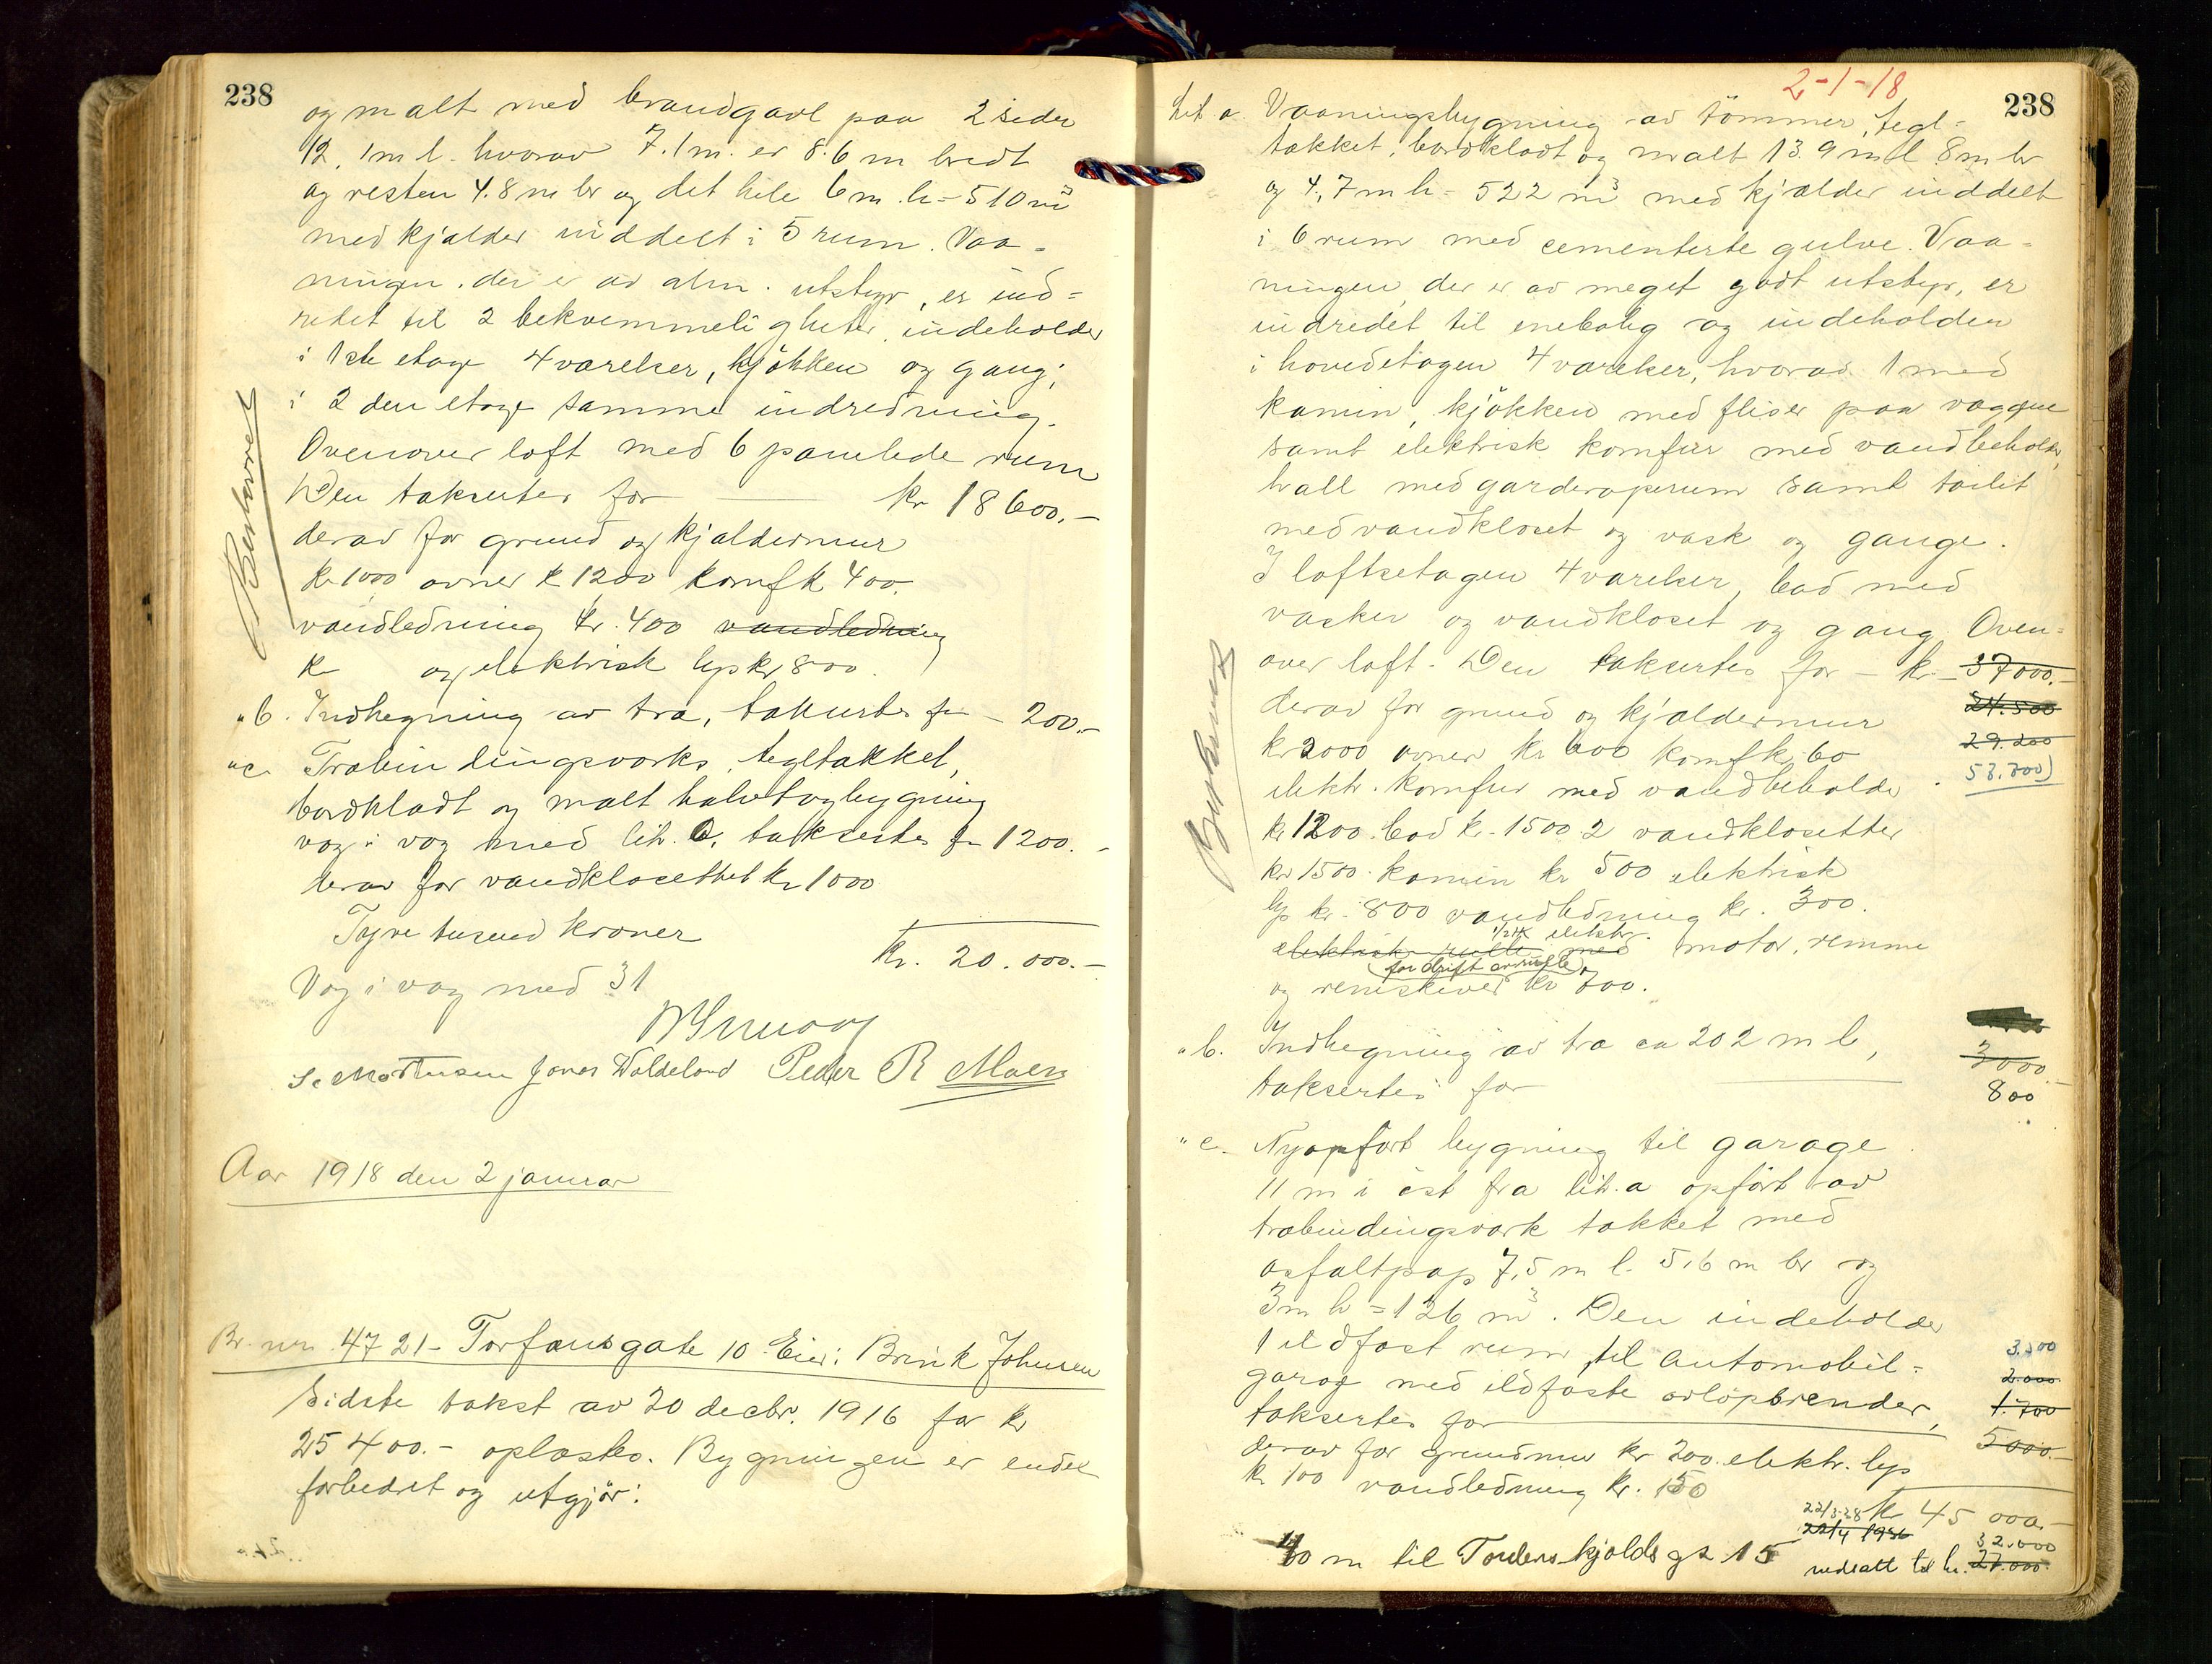 238
og malt med brandgavl paa 2 sider
12,1 m l. hvorav 7.1 m. er 8.6 m bredt
og resten 4.8 m br og det hele 6 m. h = 510 m³
med kjælder inddelt i 5 rum. Vaa-
ningen, der er av alm. utstyr, er ind=
redet til 2 bekvemmeligheter, indeholder
i 1ste etage 4 værelser, kjøkken og gang;
i 2 den etage samme indredning.
Ovenover loft med 6 panelede rum
Den takseres for kr 18600.-
derav for grund og kjældermur
kr 1000 ovner kr 1200 komf kr 400.
vandledning kr. 400 vandledning
kr og elektrisk lys kr 800.
" b. Indhegning av træ, takseres for - 200.-
" c. Træbindingsverks, tegltækket,
bordklædt og malt halvtagbygning
væg i væg med lit. a, takseres for 1200.-
derav for vandklosettet kr 1000
Tyve tusend kroner
kr. 20.000.-
Væg i væg med 31
Jonas Waldeland Peder R Moen
Aar 1918 den 2 januar
Br. nr. 4721 - Torfæusgate 10. Eier: Brink Johnsen
Sidste takst av 20 decbr. 1916 for kr
25400.- oplæstes. Bygningen er endel
forbedret og utgjør:
2-1-18
238
Lit. a. Vaaningsbygning av tømmer, tegl=
tækket, bordklædt og malt 13.9 m l 8 m br
og 4,7 m h = 522 m³ med kjælder inddelt
i 6 rum med cementerte gulve. Vaa=
ningen, der er av meget godt utstyr, er
indredet til enebolig og indeholder
i hovedetagen 4 værelser, hvorav 1 med
kamin, kjøkken med fliser paa væggene
samt elektrisk komfur med vandbeholder,
hall med garderoperum samt toilet
med vandkloset og vask og gange.
I loftsetagen 4 værelser, bad med
vasker og vandkloset og gang. Oven=
over loft. Den takseres for - kr. 37000.-
24.500
derav for grund og kjældermur
kr 2000 ovner kr 600 komf kr 60
29.200
elektr. komfur med vandbeholder
kr 1200. bad kr. 1500. 2 vandklosetter
kr 1500. kamin kr 500 elektrisk
lys kr. 800 vandledning kr. 300.
1/2 HK elektr.
elektrisk rulle med motor, remme
for drift av rulle
og remskiver kr 700.
" b. Indhegning av træ ca 202 m l,
takseres for
3000.-
800
" c. Nyopført bygning til garage
11 m i øst fra lit. a opført av
træbindingsværk tækket med
asfaltpap 7,5 m l. 5,6 m br og
3 m h = 126 m³. Den indeholder
1 ildfast rum til automobil=
garage med ildfaste avløpsrender,
takseres for
2.000
1.700
5000.-
derav for grundmur kr 200. elektr. lys
kr 100 vandledning kr. 150
kr 45 000.-
22/3-28
22/4 1936
32.000
10 m til Tordenskjolds gt 15
nedsatt til kr. 27.000.